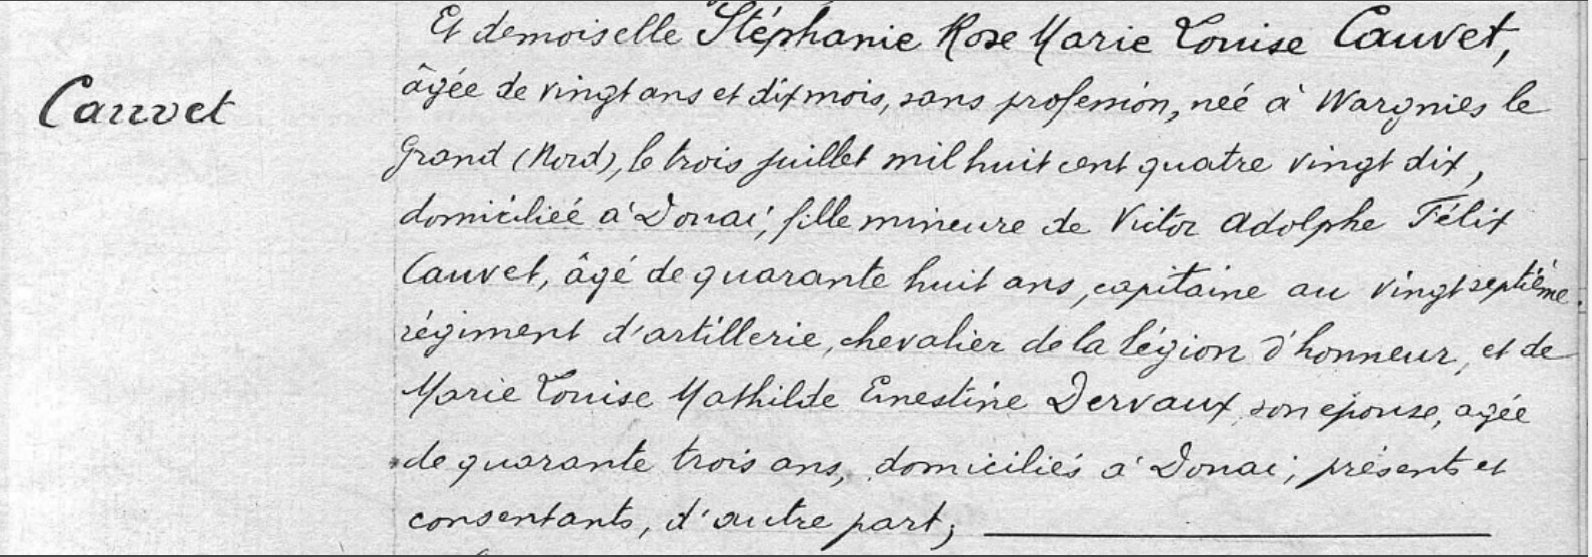 Et demoiselle Stéphanie Rose Marie Louise Cauvet,
Cauvet
âgée de vingt ans et dix mois, sans profession, neé à Wargnies le
Grand (Nord), le trois juillet mil huit cent quatre vingt dix,
domiciliée à Douai, fille mineure de Victor Adolphe Félix
Cauvet, âgé de quarante huit ans, capitaine au vingt septième
régiment d'artillerie, chevalier de la légion d'honneur, et de
Marie Louise Mathilde Ernestine Dervaux, son épouse, agée
de quarante trois ans, domiciliés à Douai; présents et
consentants, d'autre part;